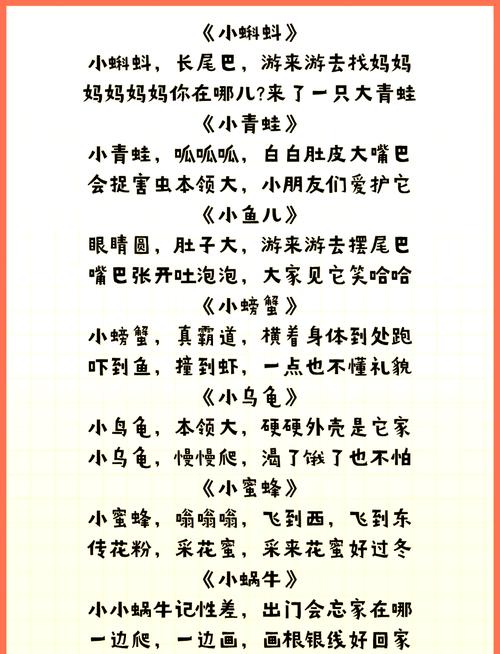 《小蝌蚪》
小蝌蚪，长尾巴，游来游去找妈妈
妈妈妈妈你在哪儿?来了一只大青蛙
《小青蛙》
小青蛙，呱呱呱，白白肚皮大嘴巴
会捉害虫本领大，小朋友们爱护它
《小鱼儿》
眼睛圆，肚子大，游来游去摆尾巴
嘴巴张开吐泡泡，大家见它笑哈哈
《小螃蟹》
小螃蟹，真霸道，横着身体到处跑
吓到鱼，撞到虾，一点也不懂礼貌
《小乌龟》
小鸟龟，本领大，硬硬外壳是它家
小乌龟，慢慢爬，渴了饿了也不怕
《小蜜蜂》
小蜜蜂，嗡嗡嗡，飞到西，飞到东
传花粉，采花蜜，采来花蜜好过冬
《小蜗牛》
小小蜗牛记性差，出门会忘家在哪
一边爬，一边画，画根银线好回家